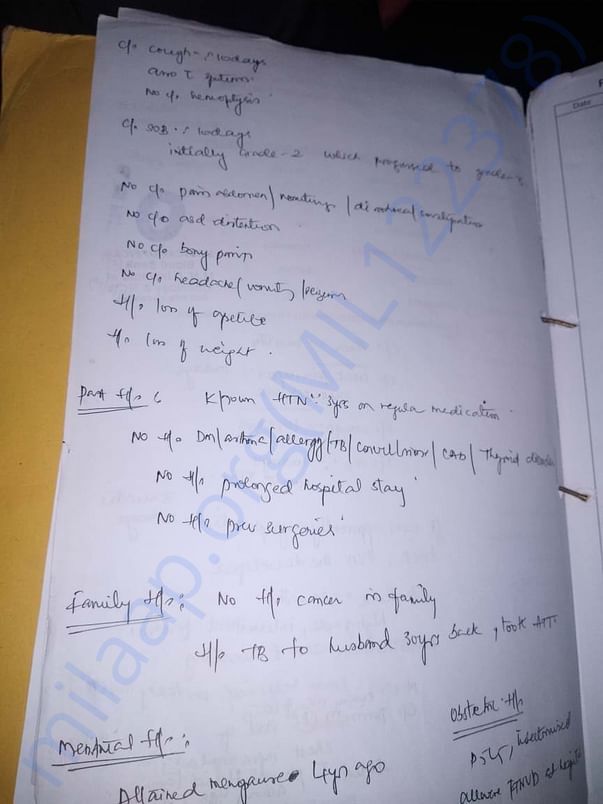 c/o cough - : 10days
asso c̄ sputum
No c/o hemoptysis
c/o SOB : 10days
initially Grade-2 which progressed to grade
No c/o pain abdomen / vomiting / diarrhoea / constipation
No c/o abd distention
No c/o bony pain
No c/o headache / vomiting /
H/o loss of apetite
H/o loss of weight.
Past H/o : Known HTN : 3yrs on regular medication
No H/o Dm / asthma / allergy / TB / convulsions / CAD / Thyroid disorder
No H/o prolonged hospital stay
No H/o prev surgeries
Family H/o : No H/o cancer in family
H/o TB to husband 30yrs back, took ATT
Obstetric H/o
Menstrual H/o :
P5L5,
Attained menopause 4yrs ago
all were FTNVD at
Date
milaap.org(MIL122378)